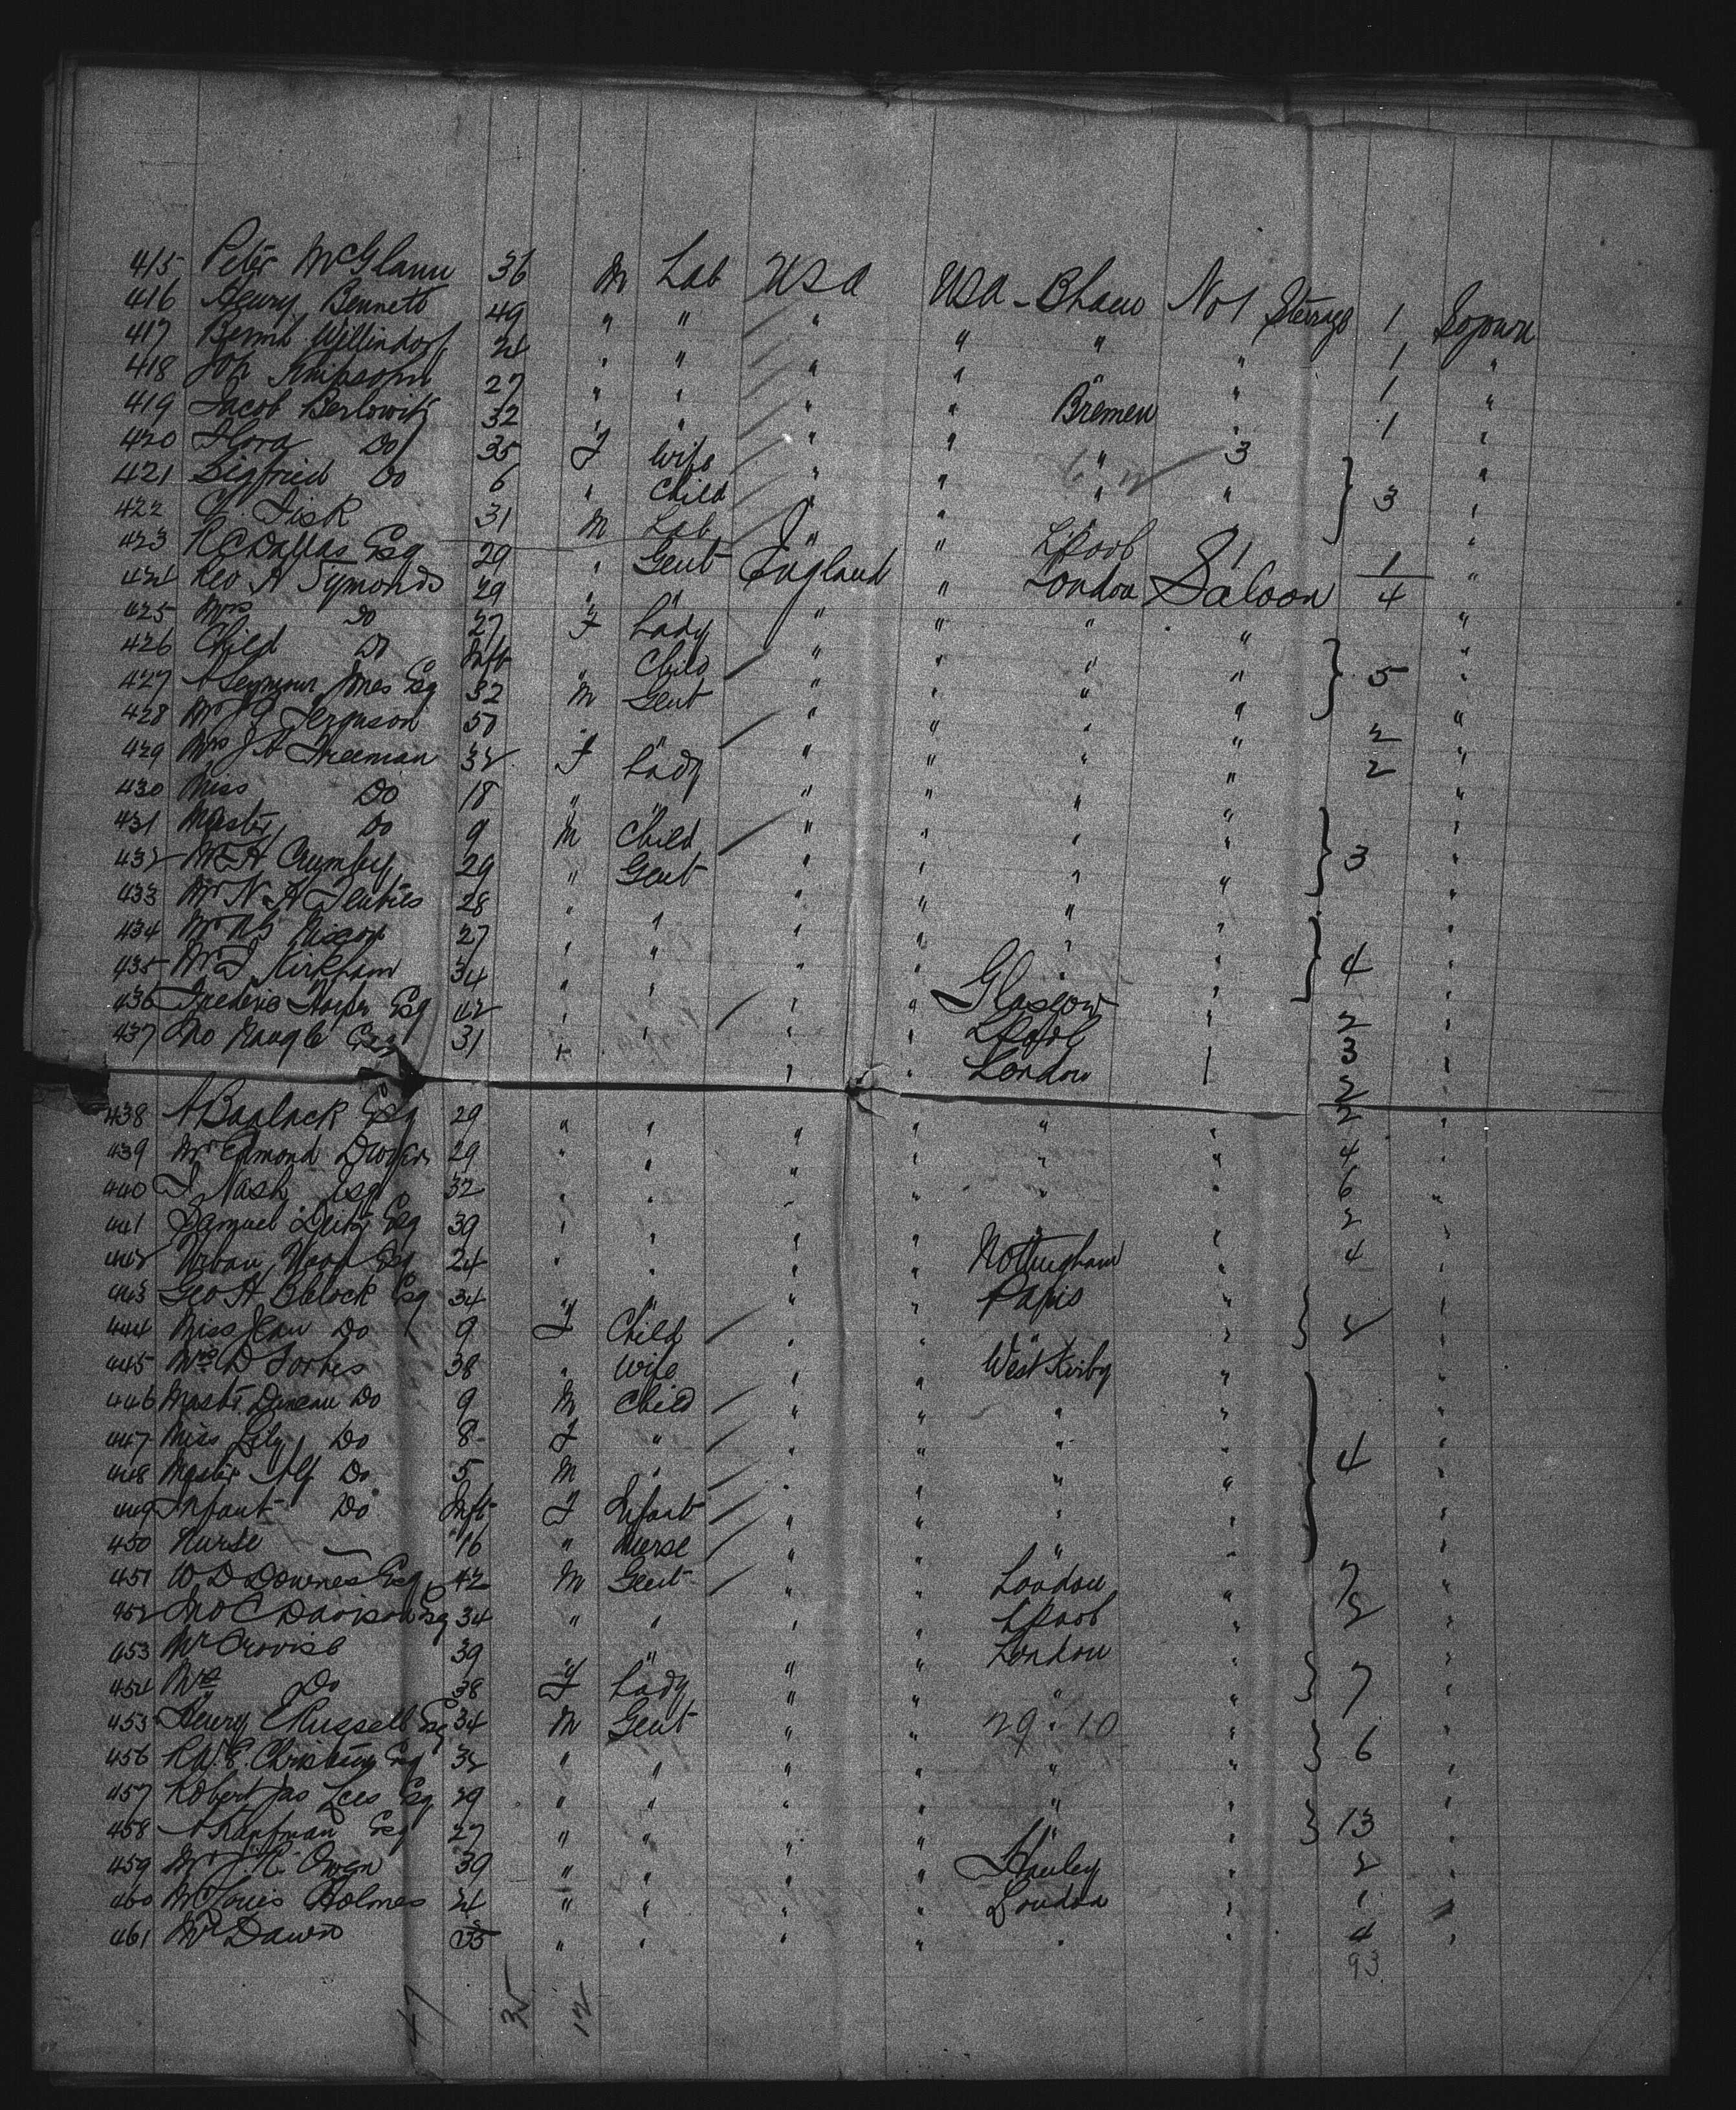 415 Peter McGlann 36 M Lab USA USA - No 1 Sterrage 1
416 Henry Bennett 49 " " " " " " 1 "
417 24 " " " " " 1 "
418 Simpson 27 " " " " Bremen " 1 "
419 Jacob Berlowitz 32 " " " " " 3 "
420 Flora Do 35 F Wife " " " " 3 "
421 Sigfried Do 6 " Child " " "
422 Fisk 31 M Lab " " LPool 1 1 "
423 R C Dallas Esq 29 " Gent England " London Saloon 4 "
424 Rev A Symonds 29 " " " " " " "
425 Mrs Do 27 F Lady " " " " 5 "
426 Child Do Inft " Child " " " " "
427 A Seymour Jones Esq 32 M Gent " " " " 2 "
428 Mr Ferguson 50 " " " " " " 2 "
429 Mrs J A Freeman 32 F Lady " " " " "
430 Miss Do 18 " " " " " " 3 "
431 Master Do 9 M Child " " " " "
432 Mr A Crumbey 29 " Gent " " " " "
433 Mr N A 28 " " " " " " 4 "
434 Mr 27 " " " " " " "
435 Mr J Kirkham 34 " " " " Glasgow " 2 "
436 Frederic Esq 42 " " " " LPool " 3 "
437 Jno Naugle Esq 31 " " " " London " 2 "
438 A Esq 29 " " " " " " 2 "
439 Mr Edmond 29 " " " " " " 4 "
440 J Nash Esq 32 " " " " " " 6 "
441 Samuel Esq 39 " " " " " 2 "
442 Urban Esq 24 " " " " Nottingham " 4 "
443 Geo A Blelock Esq 34 " " " " Paris " 2 "
444 Miss Jean Do 9 F Child " " " " "
445 Mrs D Forbes 38 " Wife " " West Kirby " "
446 Mastr. Duncan Do 9 M Child " " " " "
447 Miss Lily Do 8 F " " " " " 4 "
448 Master Alf Do 5 M " " " " " "
449 Infant Do Inft F Infant " " " " "
450 Nurse 16 " Nurse " " " " "
451 W D Downes Esq 42 M Gent " " London " 7 "
452 Jno C Davison Esq 34 " " " " LPool " 2 "
453 Mr 39 " " " " London " 7 "
454 Mrs Do 38 F Lady " " " " "
453 Henry C Russell Esq 34 M Gent " " 29 " 10 " 6 "
456 R W. E. Esq 32 " " " " " " "
457 Robert Jas Lees Esq 29 " " " " " " 13 "
458 A Kaufman Esq 27 " " " " " " "
459 Mr J. R. Owen 39 " " " " Hanley " 2 "
460 Mr Louis Holmes 24 " " " " London " 1 "
461 Mr Dawn 35 " " " " " " 4 "
93
47 35 12